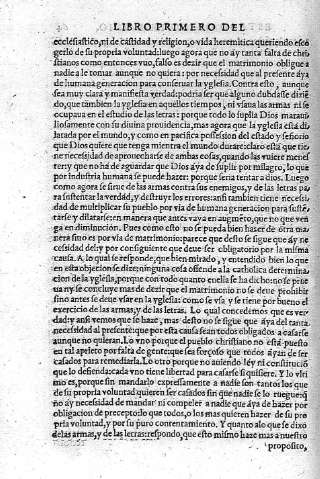 LIBRO PRIMERO DEL
ecclesiastico, ni de castidad y religion, o vida heremitica queriendo esco
gerlo de su propria voluntad: luego agora que no ay tanta falta de chri
stianos como entonces vuo, falso es dezir que el matrimonio obligue a
nadie a le tomar aunque no quiera: por necessidad que al presente aya
de humana generacion para conseruar la yglesia. Contra esto, aunque
sea muy clara y manifiesta verdad: podria ser que alguno dubdasse dizie
do, que tambien la yglesia en aquellos tiempos, ni vsaua las armas ni se
ocupaua en el estudio de las letras: porque todo lo suplia Dios maraui
llosamente con su diuina prouidencia, mas agora que la yglesia esta di
latada por el mundo, y como en pacifica possession del estado y señorio
que Dios quiere que tenga mientra el mundo durare: claro esta que tie
ne necessidad de aprouecharse de ambas cosas, quando las vuiere menes
ter: y que no ha de aguardar que Dios aya de suplir por milagro, lo que
por industria humana se puede hazer: porque seria tentar a dios. Luego
como agora se sirue de las armas contra sus enemigos, y de las letras pa
ra sustentar la verdad, y destruyr los errores: ansi tambien tiene necessi
dad de multiplicar su pueblo por via de humana generacion para susté
tarse y dilatarse: en manera que antes vaya en augméto, que no que ven
ga en diminucion. Pues como esto no se pueda bien hazer de otra ma
nera sino es por via de matrimonio: parece que desto se sigue ay ne
cessidad del: y por consiguiente que deue ser obligatorio por la misma
causa. A lo qual se responde, que bien mirado, y entendido bien lo que
en esta objecion se dize: ninguna cosa offende a la catholica determina
cion de la yglesia, porque con todo quanto en ella se ha dicho: no se prue
ua ny se concluye mas de dezir que el matrimonio no se deue prohibir
sino antes se deue vsar en la yglesia: como se vsa y se tiene por bueno el
exercicio de las armas, y de las letras. Lo qual concedemos que es ver
dad: y ansi vemos que se haze, mas desto no se sigue que aya del tanta
necessidad al presente: que por esta causa sean todos obligados a casarse
aunque no quieran. Lo vno porque el pueblo christiano no está puesto
en tal aprieto por falta de gente: que sea forçoso que todos ayan de ser
casados para remediarla. Lo otro porque no auiendo ley ni constitució
que lo defienda: cada vno tiene libertad para casarse si quisiere. Y lo vlti
mo es, porque sin mandarlo expressamente a nadie son tantos los que
de su propria voluntad quieren ser casados sin que nadie se lo ruegue: q̃
no ay necessidad de mandar ni compeler a nadie que aya de hazer por
obligacion de precepto: lo que todos, o los mas quieren hazer de su pro
pria voluntad, y por su puro contentamiento. Y quanto a lo que se dixo
de las armas, y de las letras: respondo, que esto mismo haze mas a nuestro
proposito,